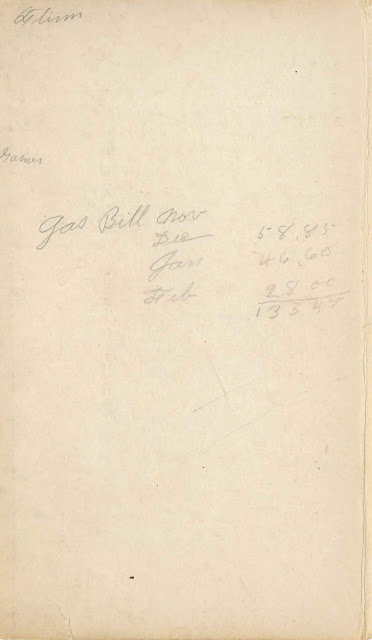 Flinn
Games
Gas Bill Nov
Dec 58.85
Jan 46.60
Feb 28 00
135 45